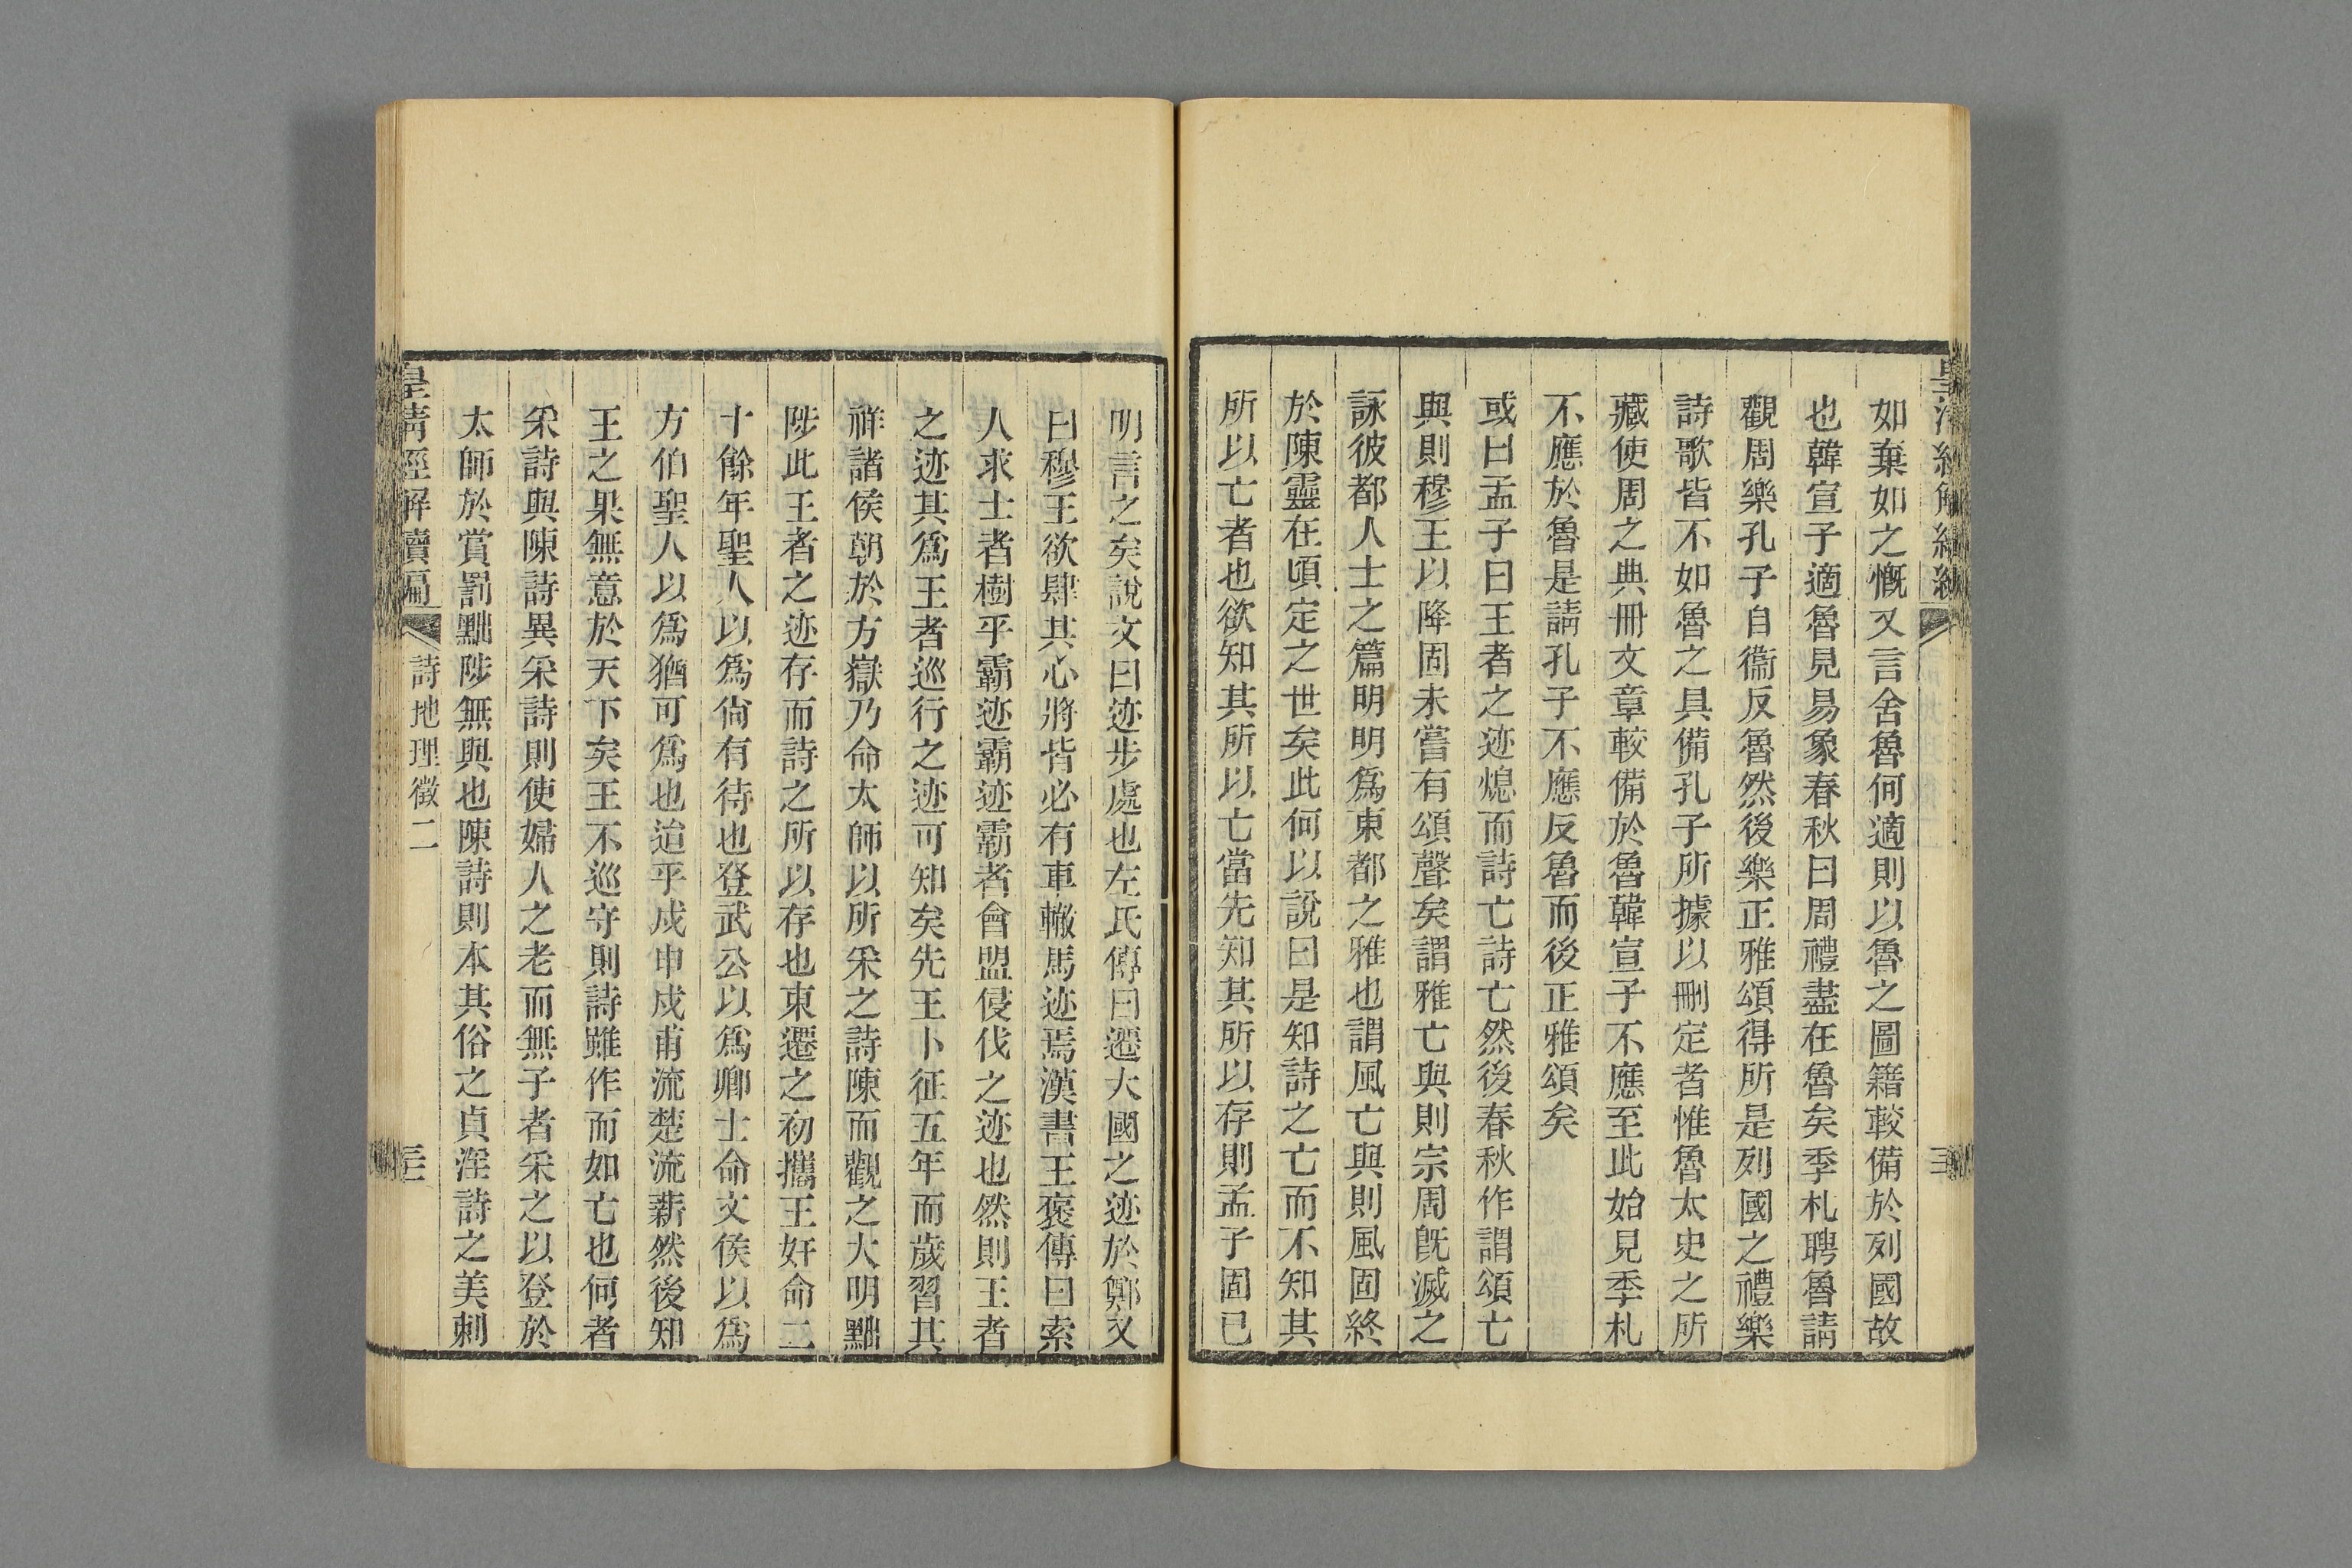 如棄如之慨又言舍魯何適則以魯之圖籍較備於列國故
也韓宣子適魯見易象春秋曰周禮盡在魯矣季札聘魯請
觀周樂孔子自衞反魯然後樂正雅頌得所是列國之禮樂
詩歌皆不如魯之具備孔子所據以刪定者惟魯太史之所
藏使周之典冊文章較備於魯韓宣子不應至此始見季札
不應於魯是請孔子不應反魯而後正雅頌矣
或曰孟子曰王者之迹熄而詩亡詩亡然後春秋作謂頌亡
與則穆王以降固未嘗有頌聲矣謂雅亡與則宗周旣滅之
詠彼都人士之篇明明爲東都之雅也謂風亡與則風固終
於陳靈在頃定之世矣此何以說曰是知詩之亡而不知其
所以亡者也欲知其所以亡當先知其所以存則孟子固已
明言之矣說文曰迹步處也左氏傳曰遷大國之迹於鄭又
曰穆王欲肆其心將皆必有車轍馬迹焉漢書王褒傳曰索
人求士者樹乎霸迹霸迹霸者會盟侵伐之迹也然則王者
之迹其爲王者巡行之迹可知矣先王卜征五年而歲習其
祥諸侯朝於方嶽乃命太師以所采之詩陳而觀之大明黜
陟此王者之迹存而詩之所以存也東遷之初攜王奸命二
十餘年聖人以爲尙有待也登武公以爲卿士命文侯以爲
方伯聖人以爲猶可爲也迨乎戍申戍甫流楚流薪然後知
王之果無意於天下矣王不巡守則詩雖作而如亡也何者
采詩與陳詩異采詩則使婦人之老而無子者采之以登於
太師於賞罰黜陟無與也陳詩則本其俗之貞淫詩之美刺
皇淸經解續編
詩地理徵二
三